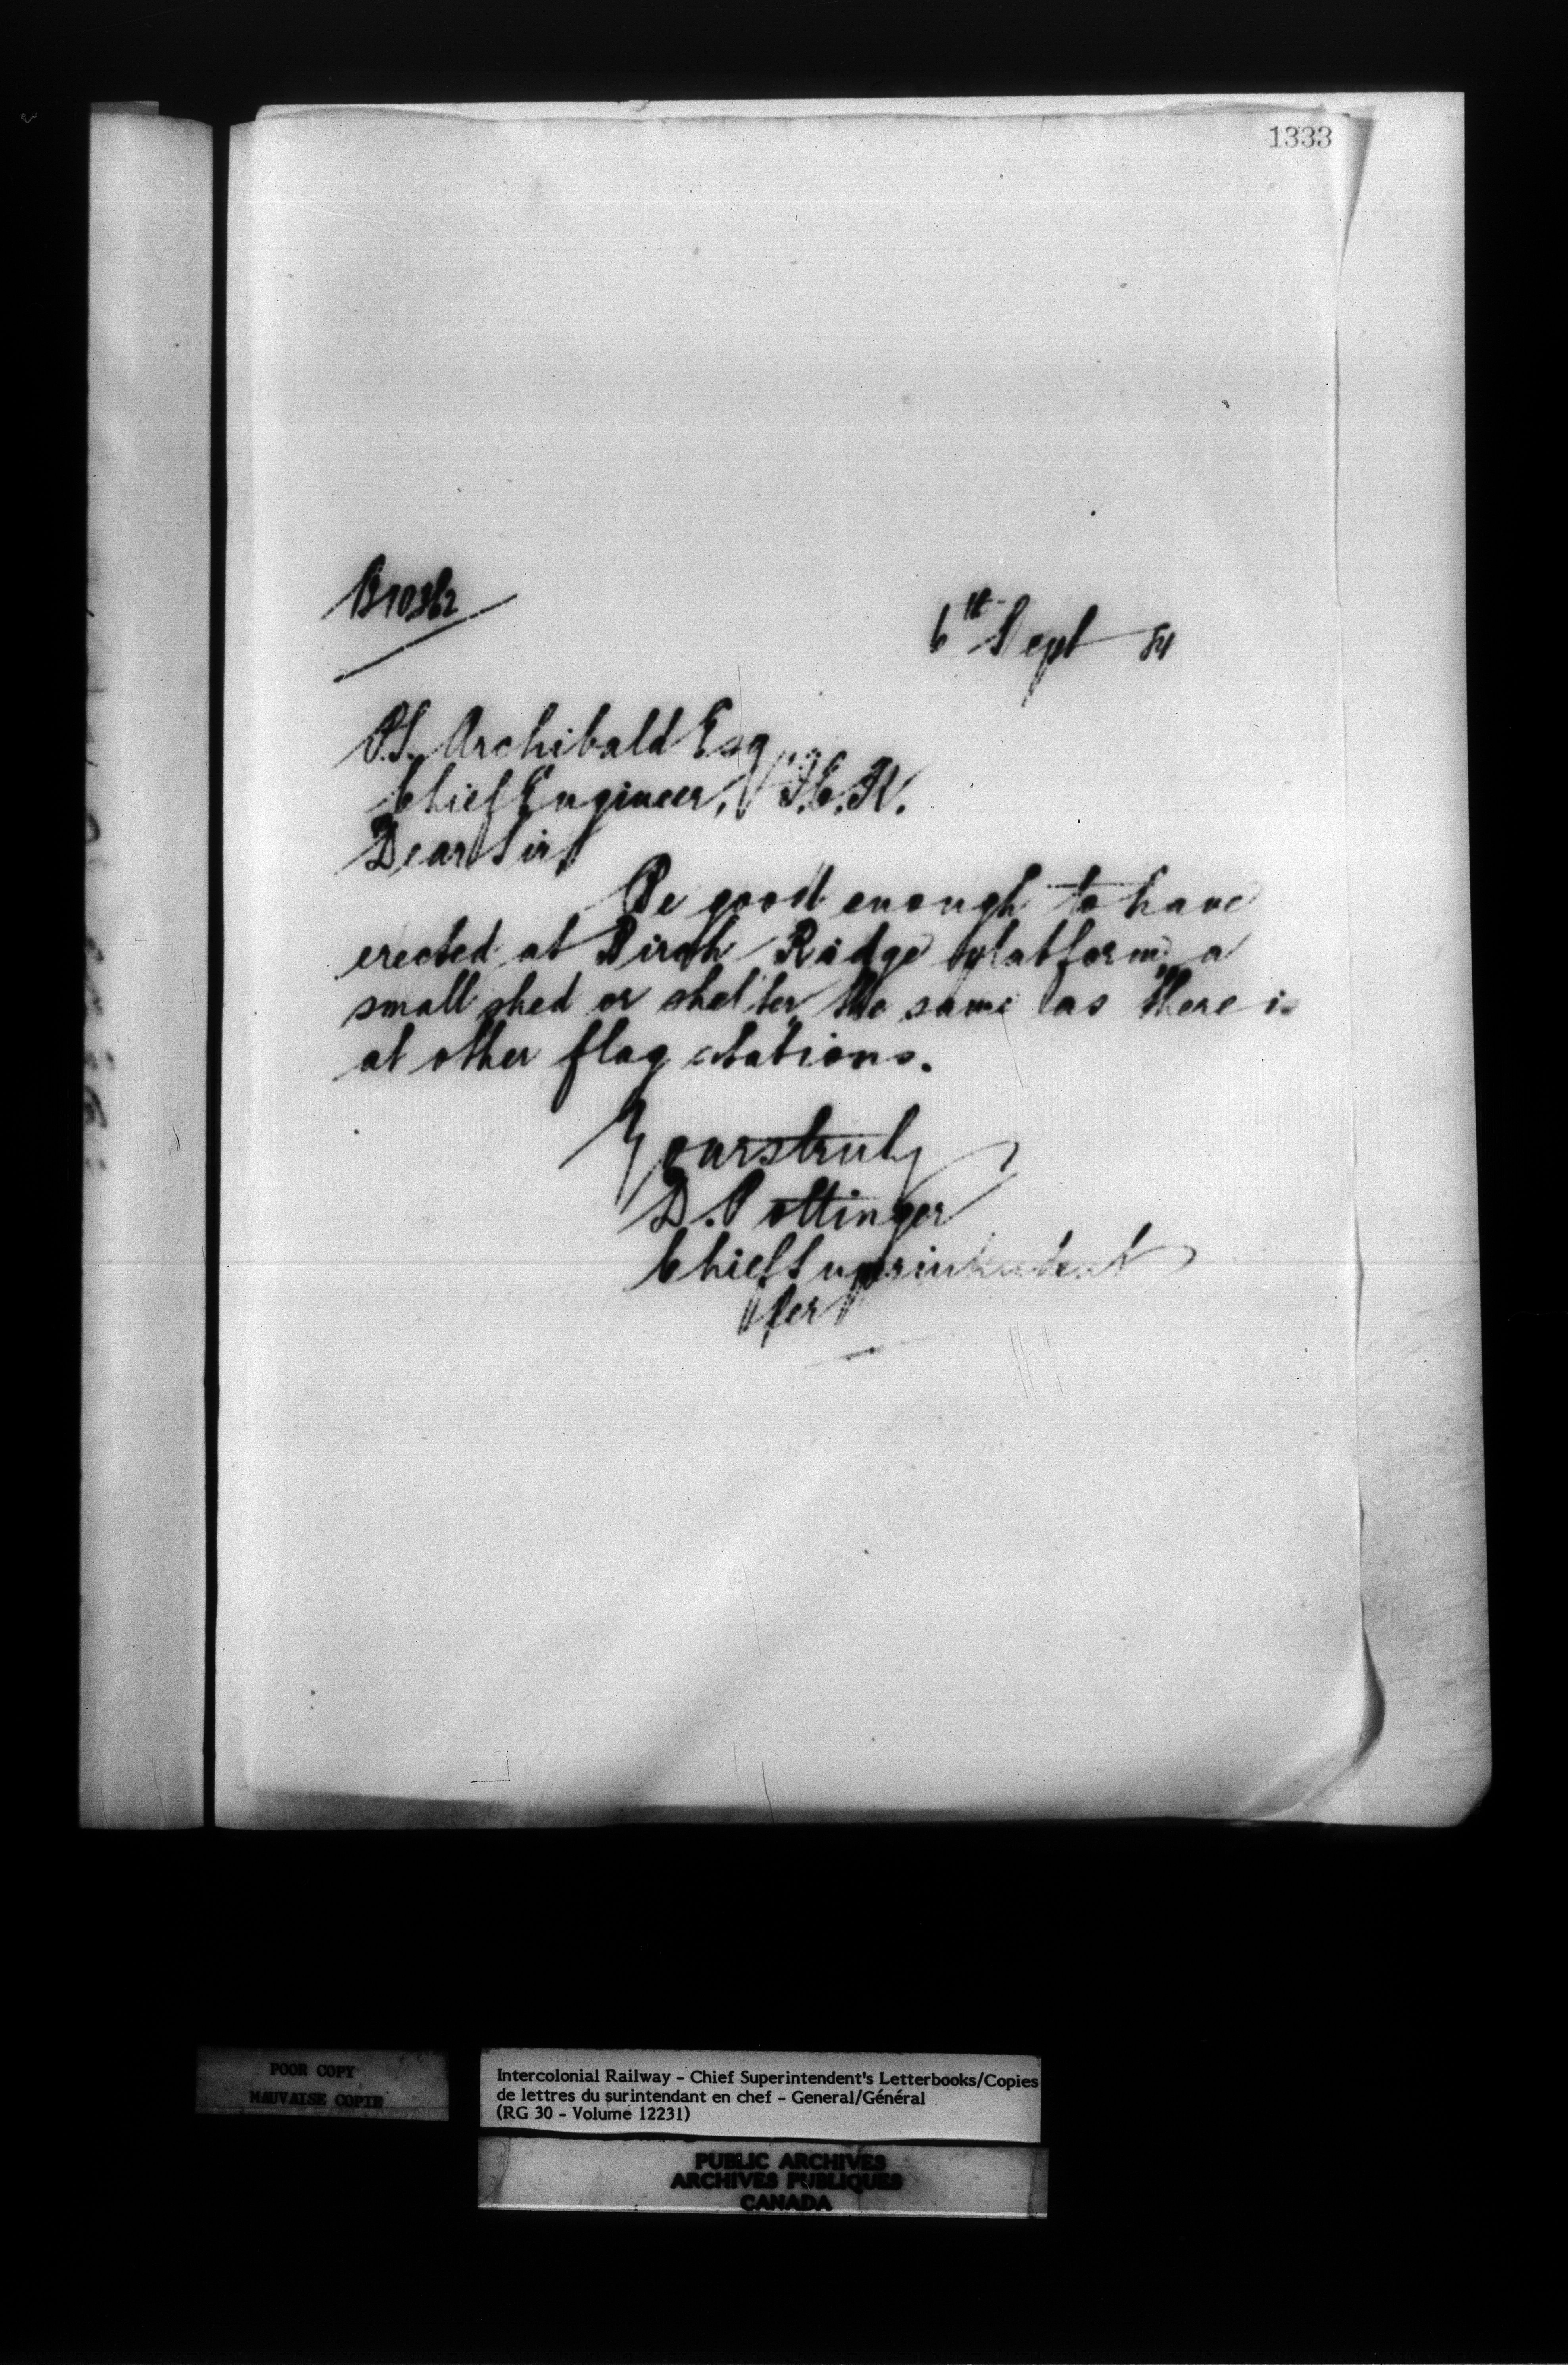 1333
B10362
6th Sept 84
P.S. Archibald Esq
Chief Engineer, I.C.R.
Dear Sir,
Be good enough to have
erected at Birch Ridge platform a
small shed or shelter the same as there is
at other flag stations.
Yours truly
D. Pottinger
Chief Superintendent
Per
POOR COPY
MAUVAISE COPIE
Intercolonial Railway - Chief Superintendent's Letterbooks/Copies
de lettres du surintendant en chef - General/Général
(RG 30 - Volume 12231)
PUBLIC ARCHIVES
ARCHIVES PUBLIQUES
CANADA